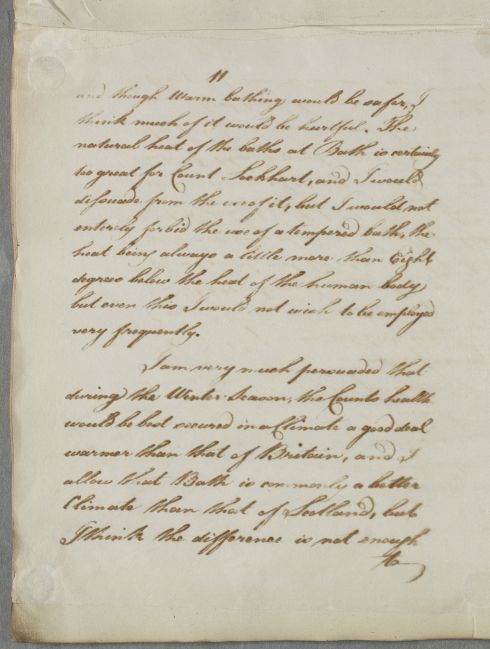 11
and though Warm bathing would be safer, I
think much of it would be hurtful. The
natural heat of the baths at Bath is certainly
too great for Count Lockhart, and I would
dissuade from the use of it, but I would not
entirely forbid the use of a tempered bath, the
heat being always a little more than Eight
degrees below the heat of the human body
but even this I would not wish to be employed
very frequently.
I am very much persuaded that
during the Winter Season, the Counts health
would be best secured in a Climate a good deal
warmer than that of Britain, and I
allow that Bath is commonly a better
Climate than that of Scotland, but
I think the difference is not enough
to